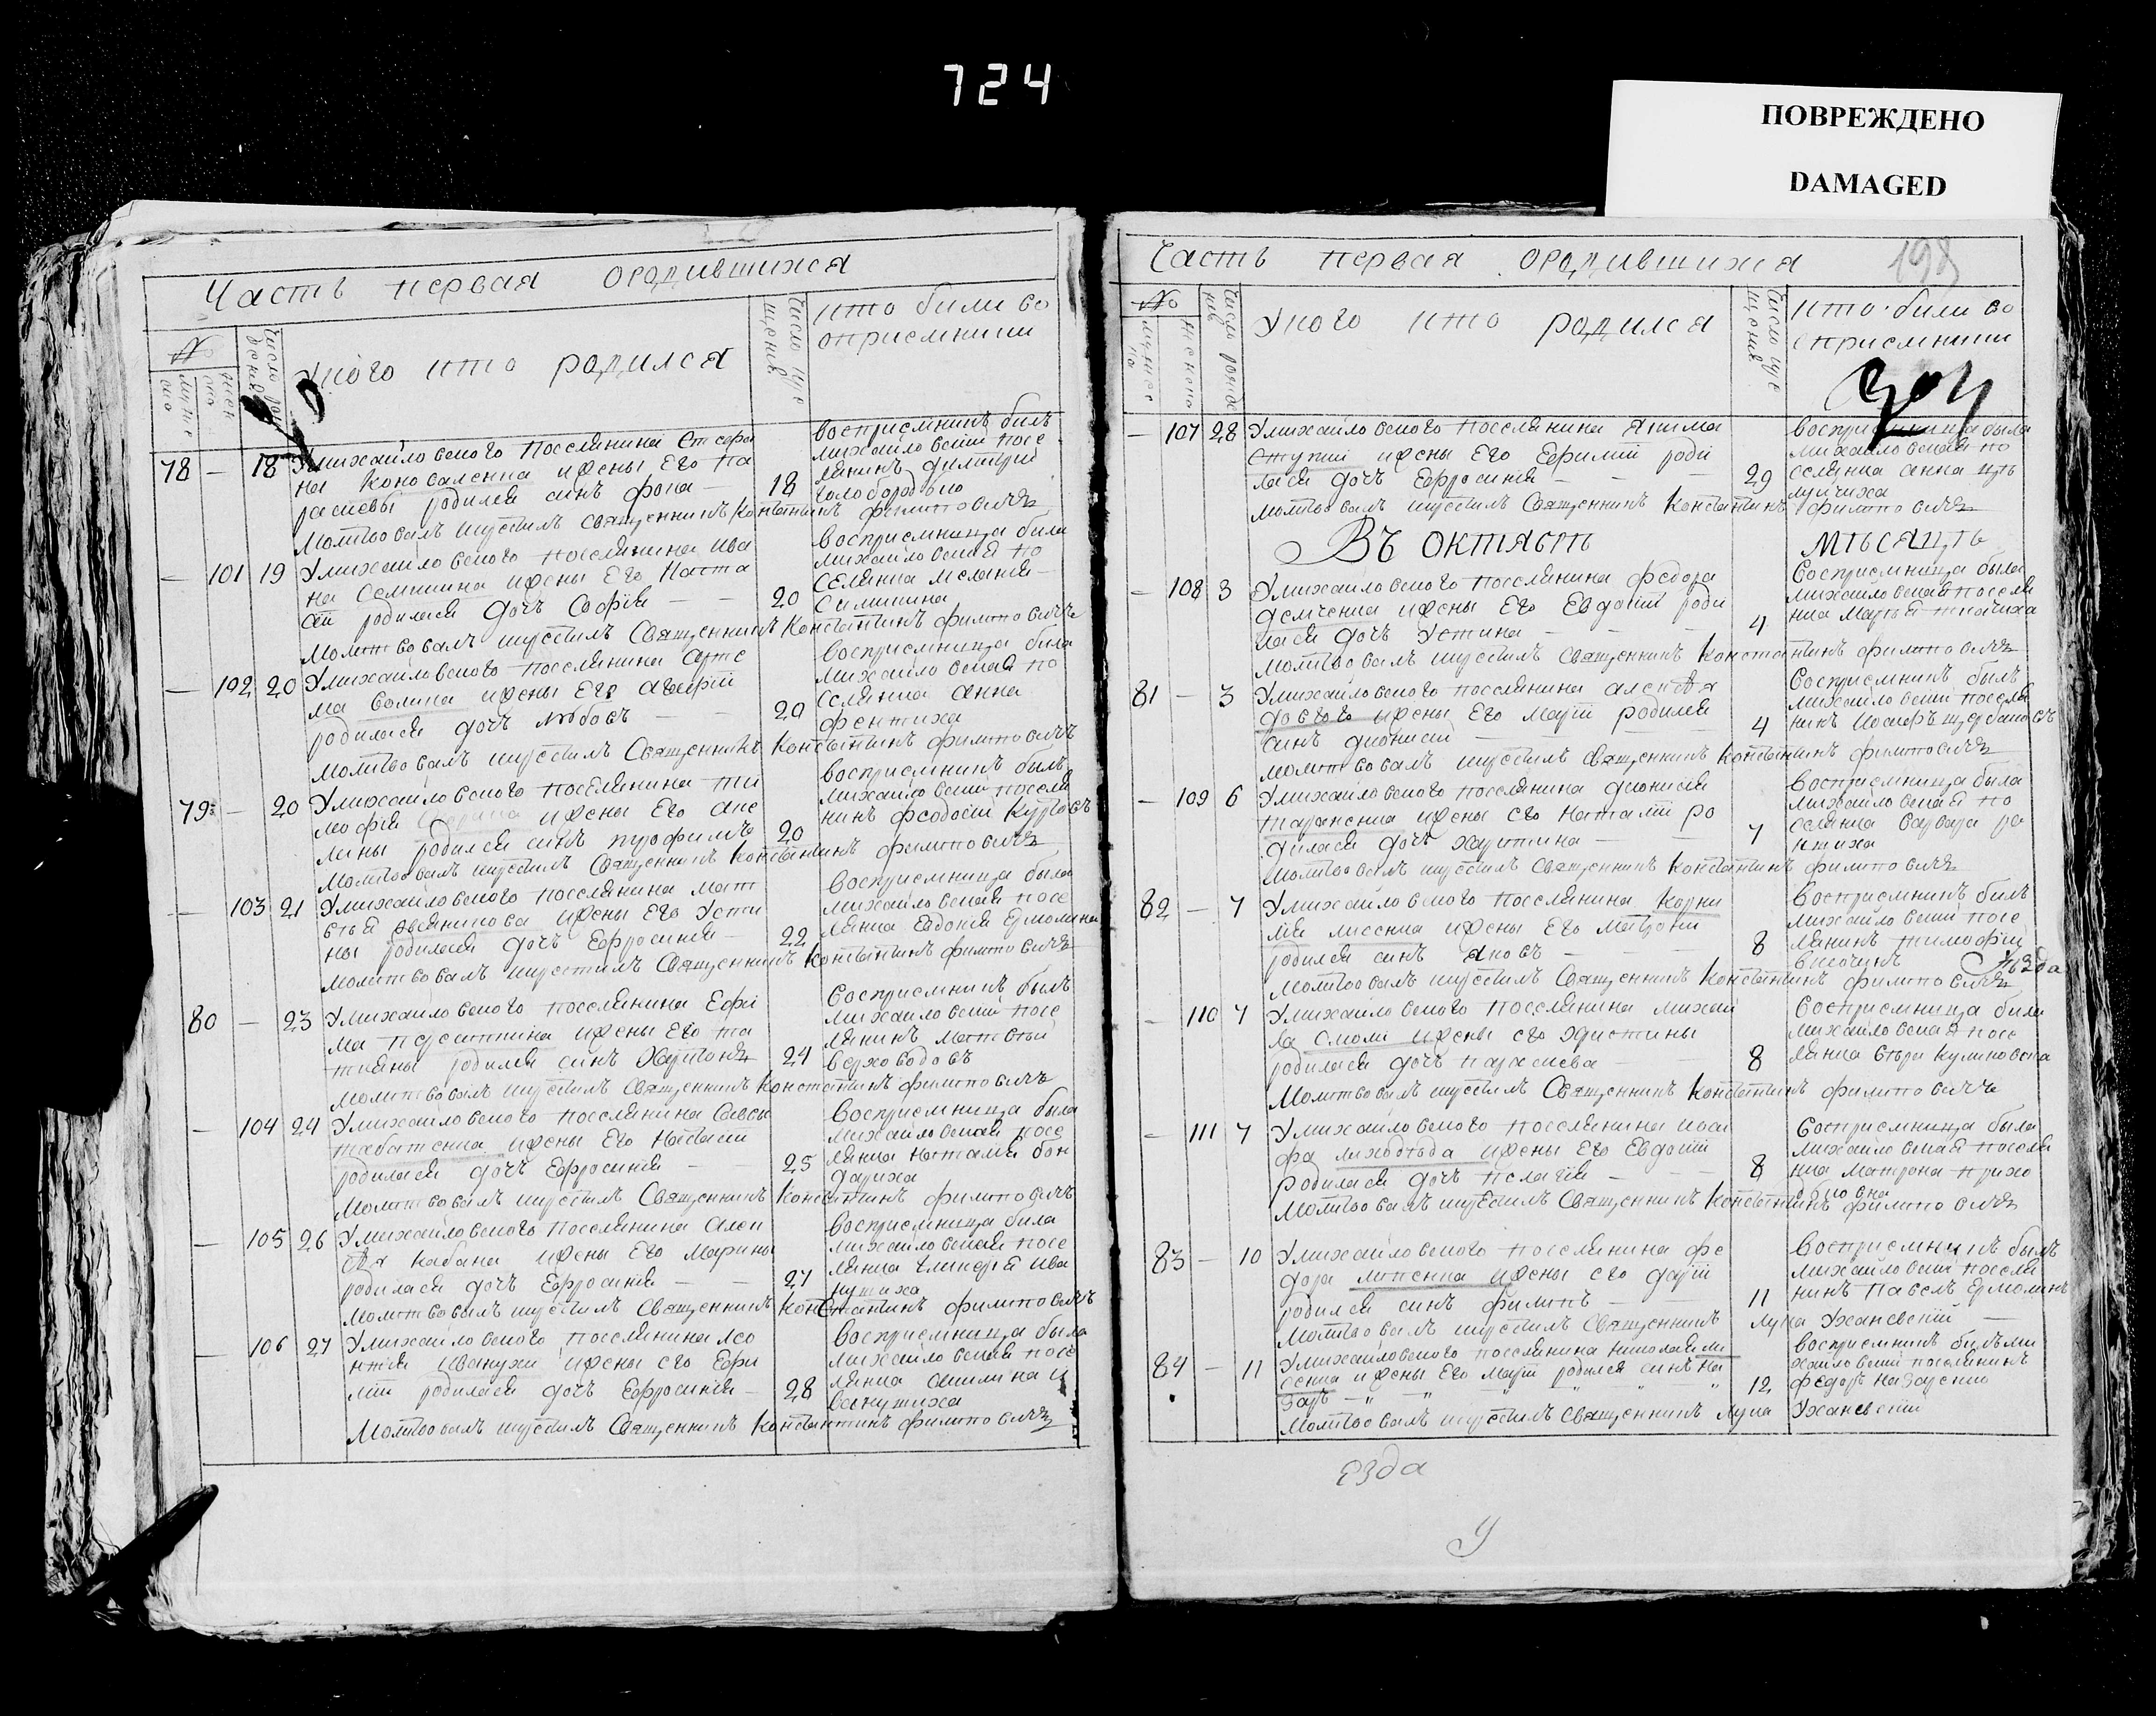 724
ПОВРЕЖДЕНО
DAMAGED
Часть первая ородившихся
№
Уково кто родился
кто били во
сприемники
78 — 18 Умихайловского поселянина Стефа
на Коноваленка ижены Его Па
раскевы родился синъ фока — 18
Молитвовалъ икрестилъ Священникъ Константинъ филиповичъ
восприемникъ билъ
михайловский посе
лянинъ димитрий
голобородько
— 101 19 Умихайловского поселянина Ива
на Семикина ижены Его Наста
сии родилася дочъ Софія — — 20
Молитвовалъ икрестилъ Священникъ Константинъ филиповичъ
восприемница била
михайловская по
селянка меланія
Симикина
— 102 20 Умихайловского поселянина Арте
ма Волика ижены Его агафии
родилася дочъ любовь — — 20
Молитвовалъ икрестилъ Священникъ Константинъ филиповичъ
восприемница била
михайловская по
селянка анна
79 — 20 Умихайловского поселянина Ти
мофія ижены Его аку
лины родился синъ трофимъ 20
Молитвовалъ икрестилъ Священникъ Константинъ филиповичъ
восприемникъ билъ
михайловский поселя
нинъ феодосий
— 103 21 Умихайловского поселянина Мат
вѣя Овсяникова ижены Его Усти
ны родилася дочъ Ефросинія — 22
Молитвовалъ икрестилъ Священникъ Константинъ филиповичъ
восприемница была
михайловская посе
лянка Евдокия Ермолина
80 — 23 Умихайловского поселянина Ефи
ма ижены Его та
тияны родился синъ Харитонъ 24
Молитвовалъ икрестилъ Священникъ Константинъ филиповичъ
восприемникъ былъ
михайловский посе
лянинъ Матвѣй
верховодовъ
— 104 24 Умихайловского поселянина Савы
табатенка ижены Его Наталии
родилася дочъ Ефросинія — 25
Молитвовалъ икрестилъ Священникъ Константинъ филиповичъ
восприемница была
михайловская посе
лянка Наталия бон
дариха
— 105 26 Умихайловского поселянина Алек
ѣя кабана ижены Его Марины
родилася дочъ Ефросинія — — 27
Молитвовалъ икрестилъ Священникъ Константинъ филиповичъ
восприемница била
михайловская посе
лянка Гликерія Ива
нушиха
— 106 27 Умихайловского поселянина Лео
нтія Иванухи ижены его Ефи
міи родилася дочъ Ефросинія — 28
Молитвовалъ икрестилъ Священникъ Константинъ филиповичъ
восприемница была
михайловская посе
лянка акилина
Часть первая ородившихся
198
№
Уково кто родился
кто били во
сприемники
— 107 28 Умихайловского поселянина Якима
Ступки ижены Его Ефимии роди
лася дочъ Ефросинія — — 29
Молитвовалъ икрестилъ Священникъ Константинъ филиповичъ
восприемница была
михайловская по
селянка анна
Въ октябрѣ мѣсяцѣ
— 108 3 Умихайловского поселянина федора
демченка ижены Его Евдокии роди
лася дочъ Устина — — — 4
Молитвовалъ икрестилъ Священникъ Константинъ филиповичъ
восприемница была
михайловская поселян
ка Марья ткачиха
81 — 3 Умихайловского поселянина алексѣя
довгого ижены Его Марии родился
синъ дионисий — 4
Молитвовалъ икрестилъ Священникъ Константинъ филиповичъ
восприемникъ былъ
михайловский поселя
нинъ Иосифъ щербаковъ
— 109 6 Умихайловского поселянина дионисия
тараненка ижены его Наталии ро
дилася дочъ харитина — 7
Молитвовалъ икрестилъ Священникъ Константинъ филиповичъ
восприемница была
михайловская по
селянка варвара
82 — 7 Умихайловского поселянина Корни
лия лисенка ижены Его Матроны
родился синъ Яковъ — — 8
Молитвовалъ икрестилъ Священникъ Константинъ филиповичъ
восприемникъ билъ
михайловский посе
лянинъ тимофий
височинъ
— 110 7 Умихайловского поселянина михай
ла Смоли ижены его Христины
родилася дочъ параскева — 8
Молитвовалъ икрестилъ Священникъ Константинъ филиповичъ
восприемница была
михайловская посе
лянка вѣра Куликовска
— 111 7 Умихайловского поселянина иоси
фа лиходѣда ижены Его Евдокии
родилася дочъ пелагия — — 8
Молитвовалъ икрестилъ Священникъ Константинъ филиповичъ
восприемница была
михайловская поселян
ка Матрона прихо
дькова
83 — 10 Умихайловского поселянина фе
дора липенка ижены его дарии
родился синъ филипъ — 11
Молитвовалъ икрестилъ Священникъ Лука Ухановский
восприемникъ былъ
михайловский поселя
нинъ Павелъ Ермолинъ
84 — 11 Умихайловского поселянина николая ли
сенка ижены Его Марии родился синъ На
заръ 12
Молитвовалъ икрестилъ Священникъ Лука Ухановский
восприемникъ билъ ми
хайловский поселянинъ
федоръ Назаренко
езда
У